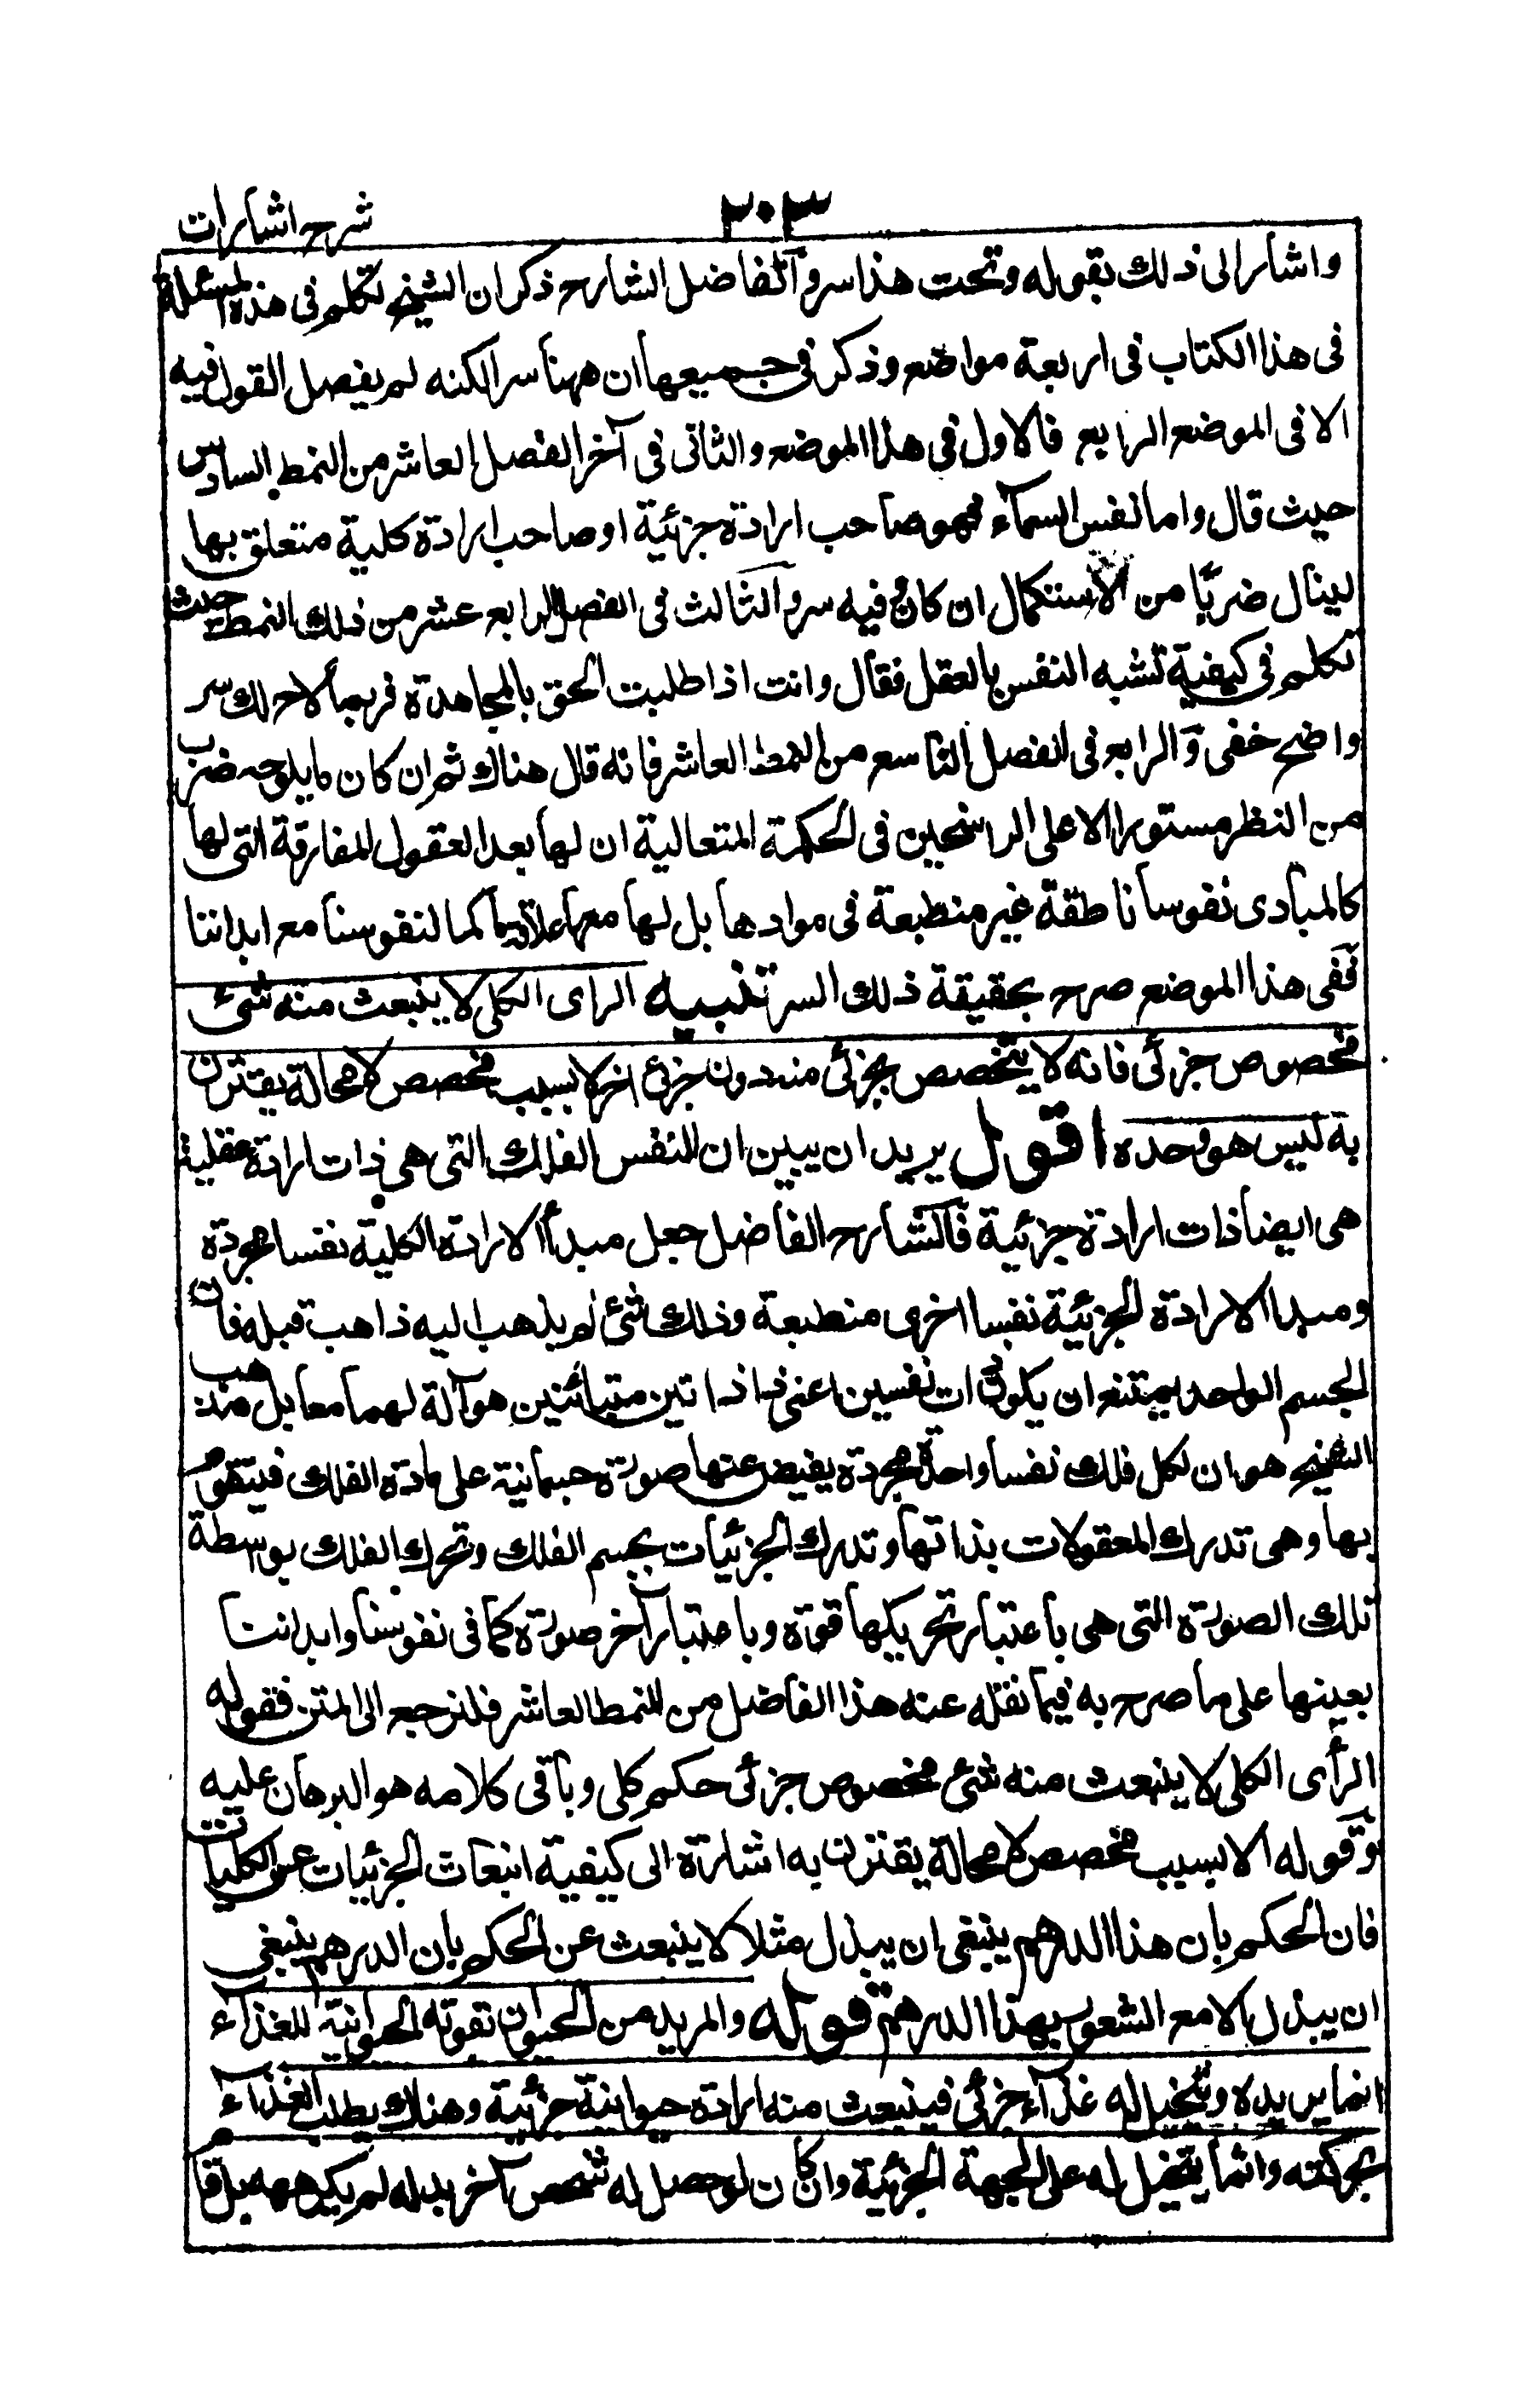 شرح اشارات
٣٠٣
واشار الى ذلك بقوله وتحت هذا سر والفاضل الشارح ذكر ان الشيخ تكلم فى هذه المسئلة
فى هذا الكتاب فى اربعة مواضع وذكر فى جميعها ان ههنا سرا لكنه لم يفصل القول فيه
الا فى الموضع الرابع فالاول فى هذا الموضع والثانى فى آخر الفصل العاشر من النمط السادس
حيث قال واما نفس السمآء فهو صاحب ارادة جزئية او صاحب ارادة كلية متعلق بها
لينال ضربًا من الاستكمال ان كان فيه سر والثالث فى الفصل الرابع عشر من ذلك النمط حيث
تكلم فى كيفية تشبه النفس بالعقل فقال وانت اذا طلبت الحق بالمجاهدة فربما لاح لك سر
واضح خفى والرابع فى الفصل التاسع من النمط العاشر فانه قال هناك ثم ان كان ما يلوحه ضرب
من النظر مستورا الا على الراسخين فى الحكمة المتعالية ان لها بعد العقول المفارقة التى لها
كالمبادى نفوسا ناطقة غير منطبعة فى موادها بل لها معها علاقة ما كما لنفوسنا مع ابداننا
ففى هذا الموضع صرح بحقيقة ذلك السر تنبيه الراى الكلى لا ينبعث منه شئ
مخصوص جزئى فانه لا يتخصص بجزئى منه دون جزئ اخر الا بسبب مخصص لا محالة يقترن
به ليس هو وحده اقول يريد ان يبين ان للنفس الفلك التى هى ذات ارادة عقلية
هى ايضا ذات ارادة جزئية فالشارح الفاضل جعل مبدأ الارادة الكلية نفسا مجردة
ومبدا الارادة الجزئية نفسا اخرى منطبعة وذلك شئ لم يذهب اليه ذاهب قبله فان
الجسم الواحد يمتنع ان يكون ذات نفسين اعنى ذا ذاتين متبائنين هو آلة لهما معا بل مذهب
الشيخ هو ان لكل فلك نفسا واحدة مجردة يفيض عنها صورة جسمانية على مادة الفلك فيتقوم
بها وهى تدرك المعقولات بذاتها وتدرك الجزئيات بجسم الفلك وتحرك الفلك بوسطة
تلك الصورة التى هى باعتبار تحريكها قوة وباعتبار آخر صورة كما فى نفوسنا وابداننا
بعينها على ما صرح به فيما نقله عنه هذا الفاضل من النمط العاشر فلنرجع الى المتن فقوله
الرأى الكلى لا ينبعث منه شئ مخصوص جزئى حكم كلى وباقى كلامه هو البرهان عليه
وقوله الا بسبب مخصص لا محالة يقترن به اشارة الى كيفية انبعات الجزئيات عن الكليات
فان الحكم بان هذا الدرهم ينبغى ان يبذل مثلا لا ينبعث عن الحكم بان الدرهم ينبغى
ان يبذل الا مع الشعور بهذا الدرهم قوله والمريد من الحيوان بقوته الحيوانية للغذآء
انما يريده ويتخيل له غذآء جزئى فينبعث منه ارادة حيوانية جزئية وهناك يطلب الغذآء
بحركته وانما يتخيل له على الجهة الجزئية وان كان لو حصل له شخص آخر بدله لم يكرهه بل قا